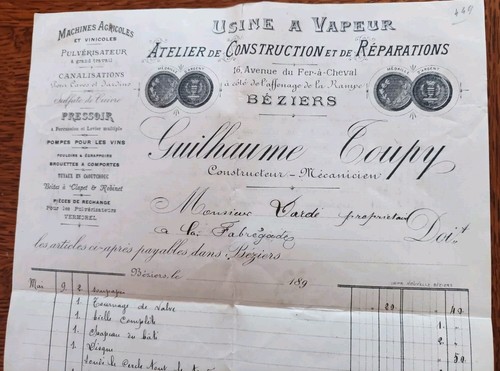 USINE A VAPEUR
ATELIER DE CONSTRUCTION ET DE RÉPARATIONS
16, Avenue du Fer-à-Cheval
à côté de l'affenage de la Rampe
BÉZIERS
Guilhaume Toupy
Constructeur-Mécanicien
MACHINES AGRICOLES
ET VINICOLES
PULVÉRISATEUR
à grand travail
CANALISATIONS
Pour Caves et Jardins
Sulfate de Cuivre
PRESSOIR
à Percussion et Levier multiple
POMPES POUR LES VINS
FOULOIRS & EGRAPPOIRS
BROUETTES & COMPORTES
TUYAUX EN CAOUTCHOUC
Boîtes à Clapet & Robinet
PIÈCES DE RECHANGE
Pour les Pulvérisateurs
VERMOREL
MÉDAILLE D'ARGENT
MÉDAILLE D'ARGENT
Monsieur Dardé propriétaire
à la Fabrègade Doit
les articles ci-après payables dans Béziers
Béziers, le 189
Mai 9 2
1 Tournage de Valve 20 40
1 bielle complète 1
1 Chapeau du bâti 2
1 Disque 50